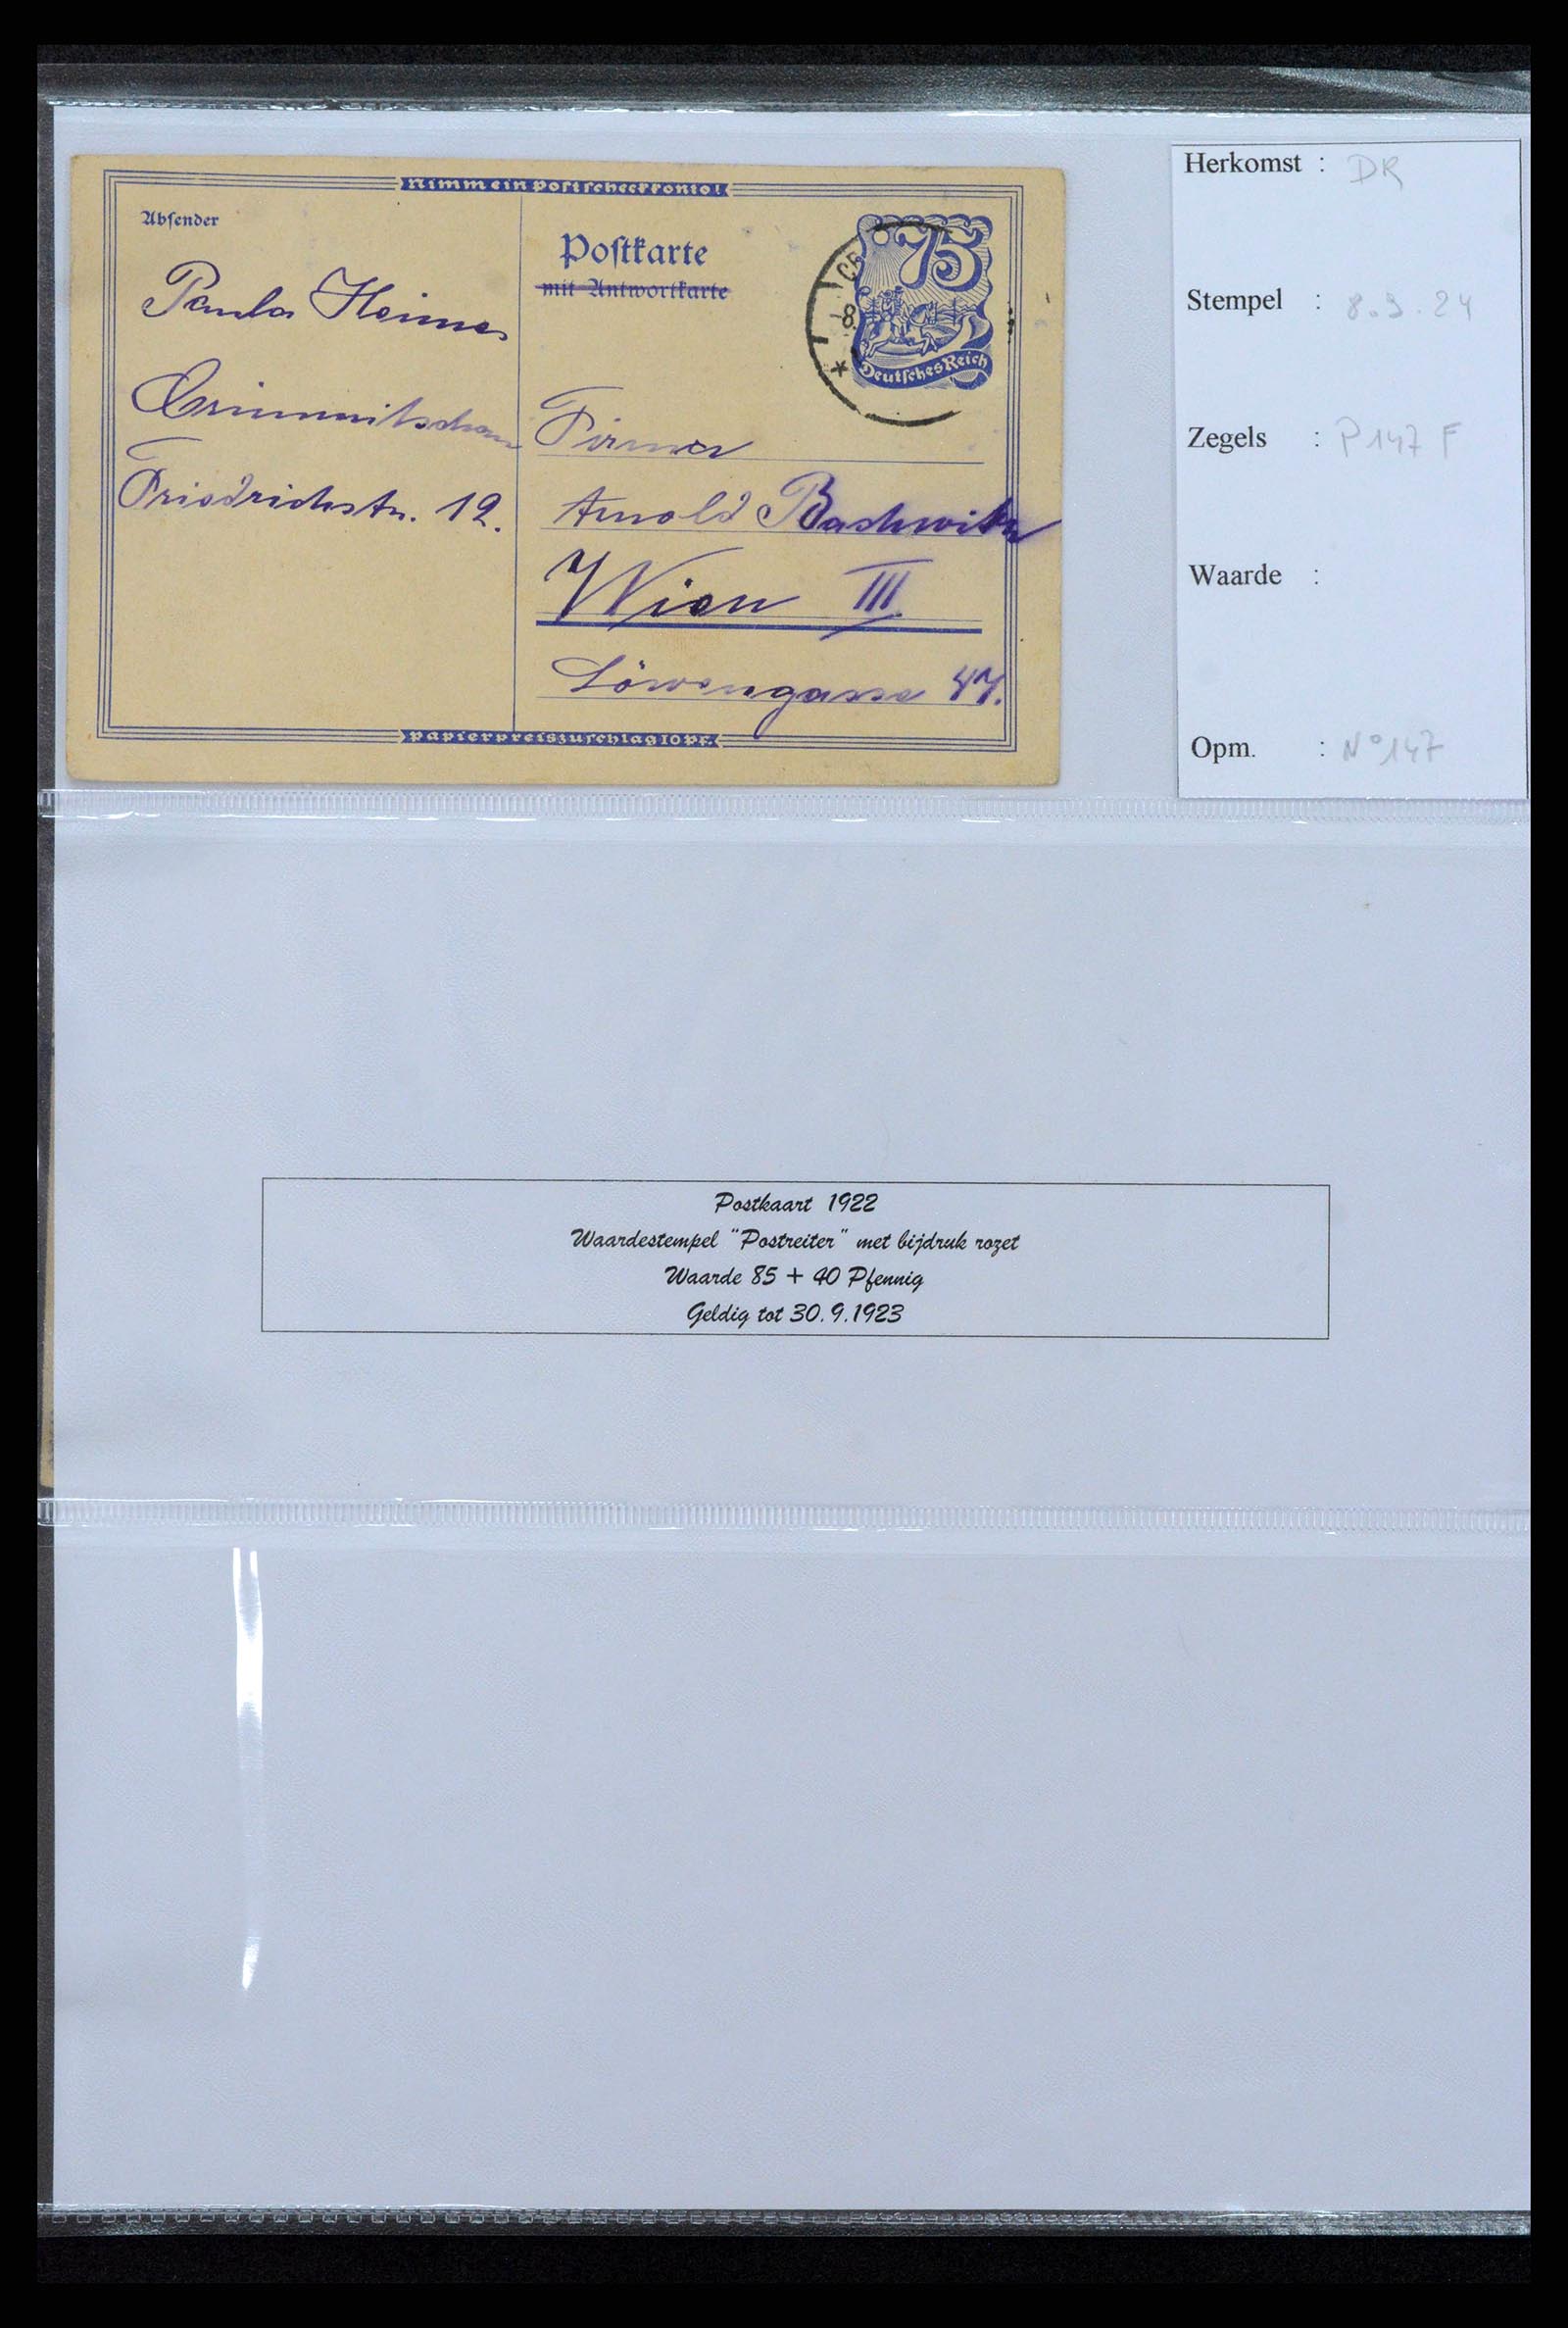 Nimm ein Postscheckkonto!
Absender
Postkarte
mit Antwortkarte
75
Deutsches Reich
CR
-8.
Paula
Crimmitschau
Friedrichstr. 12.
Firma
Arnold Bachwitz
Wien III
Löwengasse 47.
Papierpreiszuschlag 10 Pf.
Herkomst : DR
Stempel : 8.3.24
Zegels : P147 F
Waarde :
Opm. : N°147
Postkaart 1922
Waardestempel "Postreiter" met bijdruk rozet
Waarde 85 + 40 Pfennig
Geldig tot 30.9.1923